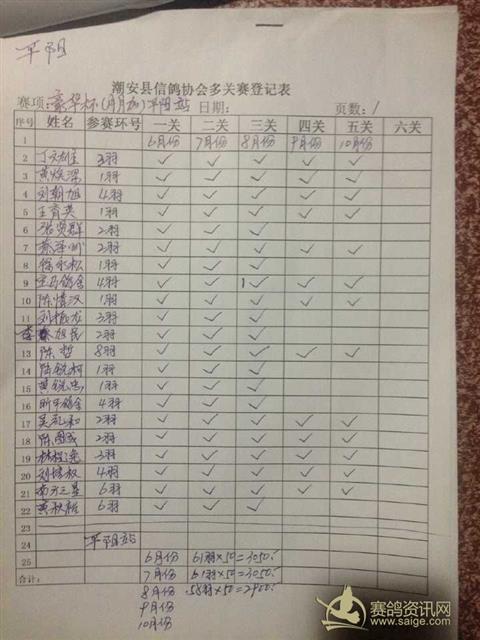 平阳
潮安县信鸽协会多关赛登记表
赛项: 豪华杯(月月加)平阳站 日期: 页数: 1
序号 姓名 参赛环号 一关 二关 三关 四关 五关 六关
1 6月份 7月份 8月份 9月份 10月份
2 3羽 ✓ ✓ ✓ ✓ ✓
3 黄焕深 1羽 ✓ ✓ ✓ ✓ ✓
4 刘朝旭 4羽 ✓ ✓ ✓ ✓ ✓
5 王育英 1羽 ✓ ✓ ✓ ✓ ✓
6 张贤群 2羽 ✓ ✓ ✓
7 2羽 ✓ ✓ ✓ ✓ ✓
8 徐永松 1羽 ✓ ✓ ✓
9 宝马鸽舍 4羽 ✓ ✓ ✓ ✓ ✓
10 陈惜汉 1羽 ✓ ✓ ✓ ✓ ✓
11 刘振龙 3羽 ✓ ✓ ✓
李旭民 2羽 ✓ ✓ ✓
13 陈哲 8羽 ✓ ✓ ✓ ✓ ✓
14 陆锐柯 1羽 ✓ ✓ ✓
15 黄锐忠 1羽 ✓ ✓ ✓
16 昕宇鸽舍 4羽 ✓ ✓ ✓
17 2羽 ✓ ✓ ✓ ✓ ✓
18 2羽 ✓ ✓ ✓ ✓ ✓
19 3羽 ✓ ✓ ✓ ✓ ✓
20 刘培权 4羽 ✓ ✓ ✓ ✓ ✓
21 南方三星 6羽 ✓ ✓ ✓ ✓ ✓
22 6羽 ✓ ✓ ✓
23
24 平阳站
25 6月份 61羽×50=3050.
合计: 7月份 61羽×50=3050.
8月份 58羽×50=2900.
9月份
10月份
赛鸽资讯网
www.saige.com